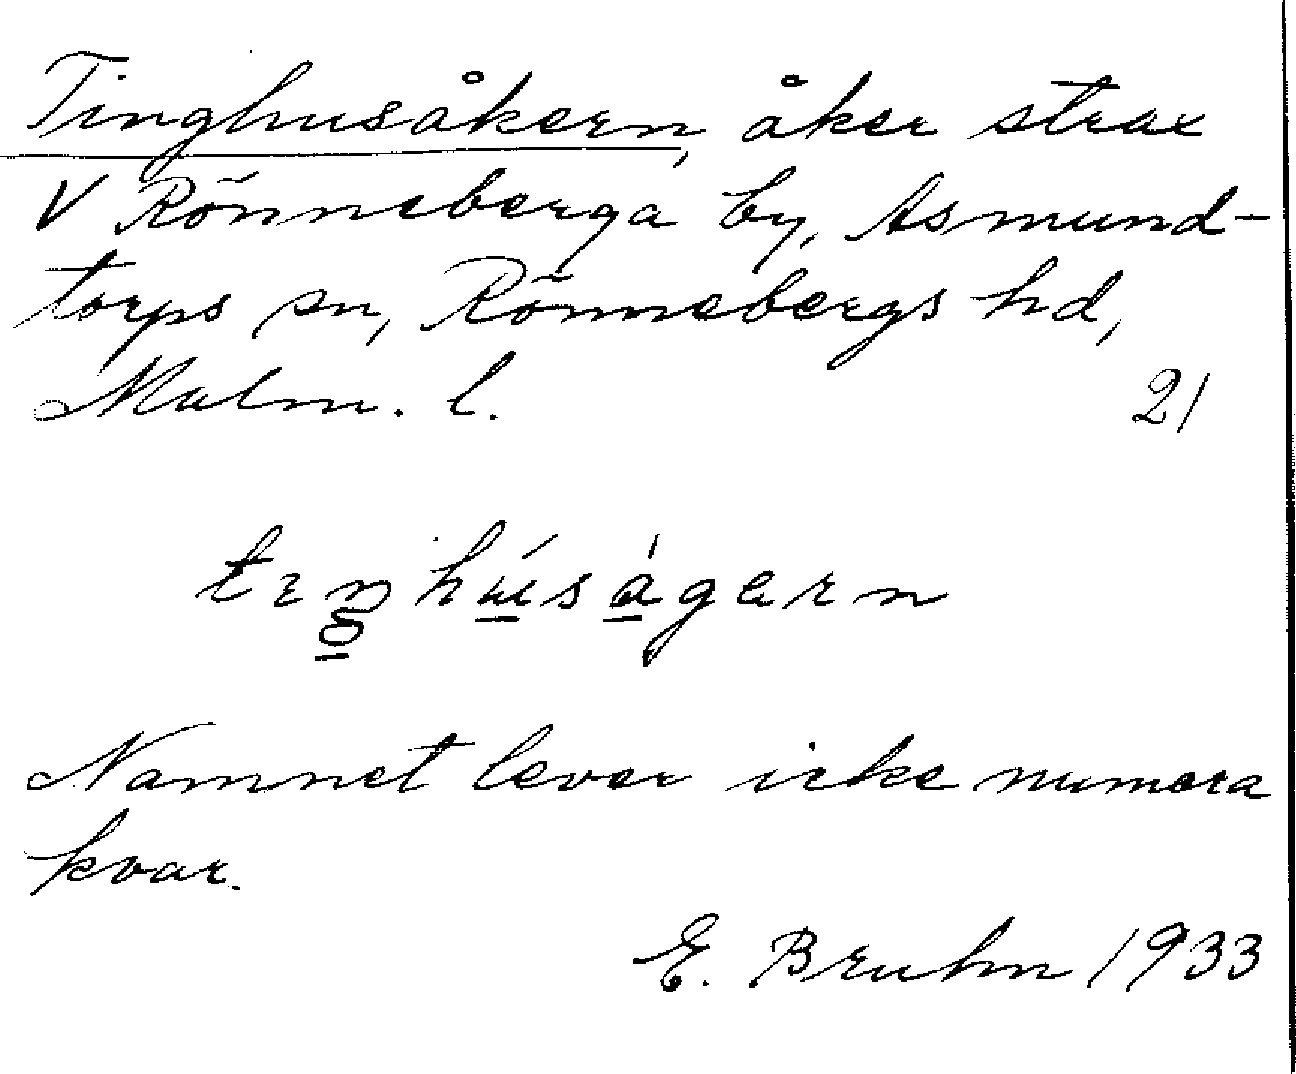 Tinghusåkern, åker strax
V Rönneberga by, Asmund-
torps sn, Rönnebergs hd,
Malm. l. 21
Namnet lever icke numera
kvar.
E. Bruhn 1933